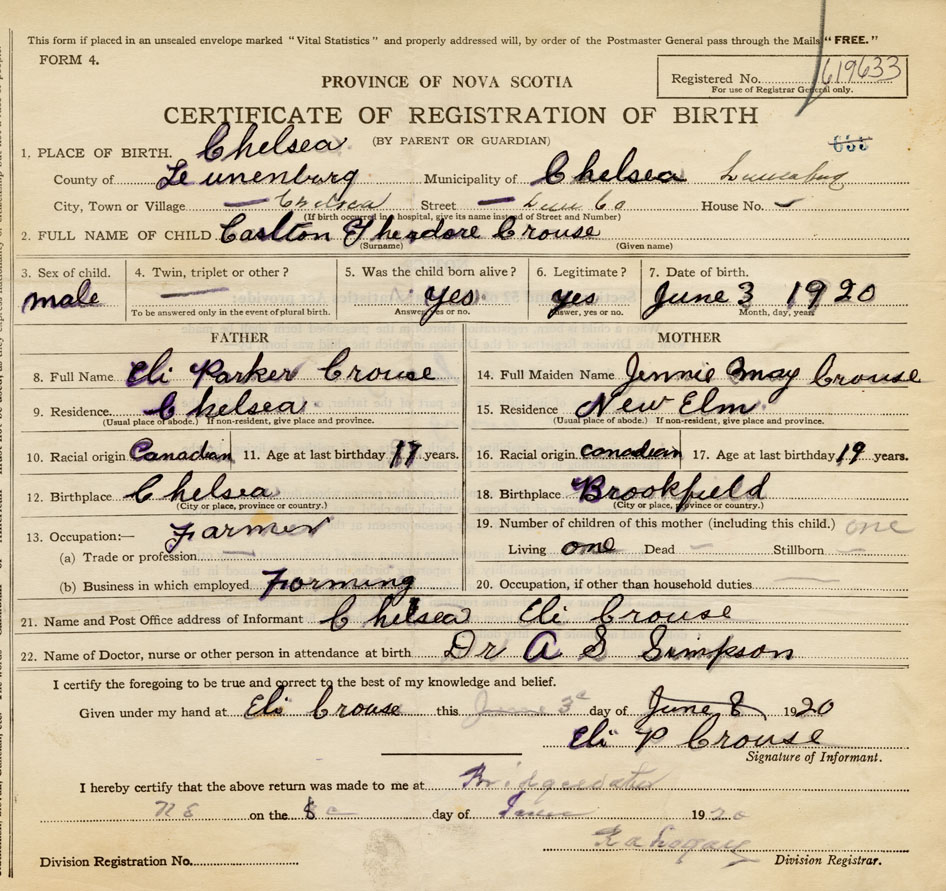 This form if placed in an unsealed envelope marked "Vital Statistics" and properly addressed will, by order of the Postmaster General pass through the Mails "FREE."
FORM 4.
PROVINCE OF NOVA SCOTIA
Registered No. 619633
For use of Registrar General only.
CERTIFICATE OF REGISTRATION OF BIRTH
(BY PARENT OR GUARDIAN)
1. PLACE OF BIRTH. Chelsea
County of Leunenburg Municipality of Chelsea Lunenburg
City, Town or Village — Chelsea Street — Lune Co House No. —
(If birth occurred in a hospital, give its name instead of Street and Number)
2. FULL NAME OF CHILD Caslton Theodore Crouse
(Surname) (Given name)
3. Sex of child. 4. Twin, triplet or other? 5. Was the child born alive? 6. Legitimate? 7. Date of birth.
male — yes yes June 3 1920
To be answered only in the event of plural birth. Answer, yes or no. Answer, yes or no. Month, day, year
FATHER MOTHER
8. Full Name Eli Parker Crouse 14. Full Maiden Name Jennie May Crouse
9. Residence Chelsea 15. Residence New Elm
(Usual place of abode.) If non-resident, give place and province. (Usual place of abode.) If non-resident, give place and province.
10. Racial origin Canadian 11. Age at last birthday 17 years. 16. Racial origin canadian 17. Age at last birthday 19 years.
12. Birthplace Chelsea 18. Birthplace Brookfield
(City or place, province or country.) (City or place, province or country.)
13. Occupation:— Farmer 19. Number of children of this mother (including this child.) one
(a) Trade or profession — Living one Dead — Stillborn —
(b) Business in which employed Forming 20. Occupation, if other than household duties
21. Name and Post Office address of Informant Chelsea Eli Crouse
22. Name of Doctor, nurse or other person in attendance at birth Dr A S Simpson
I certify the foregoing to be true and correct to the best of my knowledge and belief.
Given under my hand at Eli Crouse this June 3 day of June 8 1920
Eli P Crouse
Signature of Informant.
I hereby certify that the above return was made to me at Bridgewater
on the 8 day of June 1920
Division Registration No. Division Registrar.